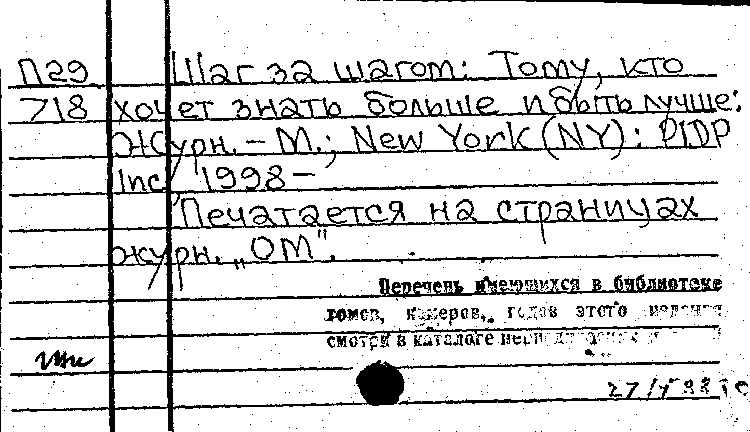 П29 Шаг за шагом: Тому, кто
718 хочет знать больше и быть лучше:
Журн. – М.; New York (NY): PIDP
Inc, 1998 –
Печатается на страницах
журн. „ОМ".
Перечень имеющихся в библиотеке
томов, номеров, годов этого издания
смотри в каталоге